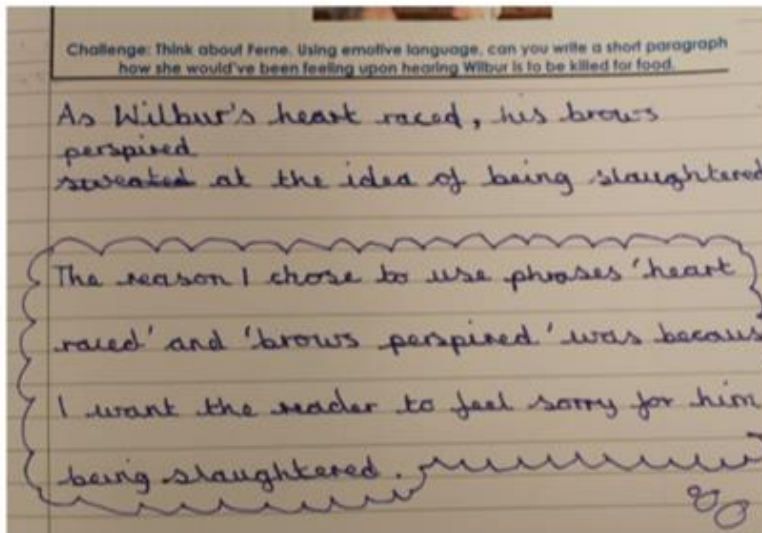 Challenge: Think about Ferne. Using emotive language, can you write a short paragraph
how she would've been feeling upon hearing Wilbur is to be killed for food.
As Wilbur's heart raced, his brows
perspired
sweated at the idea of being slaughtered
The reason I chose to use phrases 'heart
raced' and 'brows perspired' was becaus
I want the reader to feel sorry for him
being slaughtered.